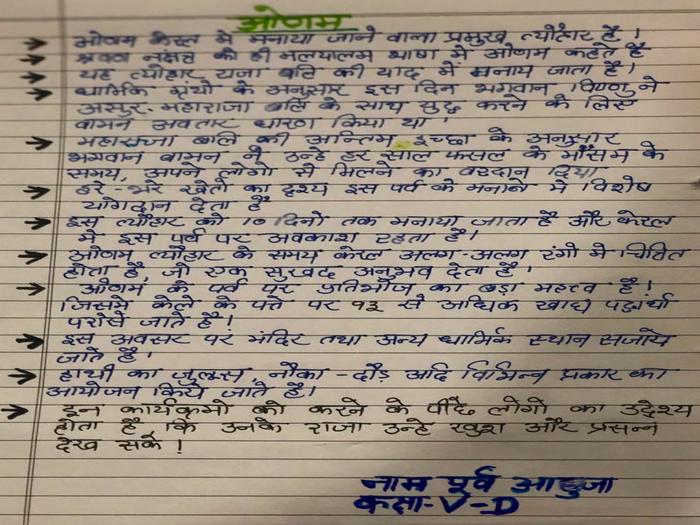 ओणम
→ ओणम केरल में मनाया जाने वाला प्रमुख त्यौहार है।
→ श्रवण नक्षत्र को ही मलयालम भाषा में ओणम कहते है
→ यह त्यौहार राजा बलि की याद में मनाय जाता है।
→ धार्मिक ग्रंथो के अनुसार इस दिन भगवान विष्णु ने
असुर-महाराजा बलि के साथ युद्ध करने के लिए
वामन अवतार धारण किया था।
→ महाराजा बलि की अन्तिम इच्छा के अनुसार
भगवान वामन ने उन्हे हर साल फसल के मौसम के
समय, अपने लोगो से मिलने का वरदान दिया
→ हरे-भरे खेतो का दृश्य इस पर्व के मनाने मे विशेष
योगदान देता है
→ इस त्यौहार को 10 दिनो तक मनाया जाता है और केरल
मे इस पर्व पर अवकाश रहता है।
→ ओणम त्यौहार के समय केरल अलग-अलग रंगो मे चित्रित
होता है, जो एक सुखद अनुभव देता है।
→ ओणम के पर्व पर प्रतिभोज का बड़ा महत्व है।
जिसमे केले के पत्ते पर १३ से अधिक खाद्य पदार्थो
परोसे जाते है।
→ इस अवसर पर मंदिर तथा अन्य धार्मिक स्थान सजाये
जाते है।
→ हाथी का जुलूस, नौका-दौड़ आदि विभिन्न प्रकार का
आयोजन किये जाते है।
→ इन कार्यक्रमो को करने के पीछे लोगो का उद्देश्य
होता है, कि उनके राजा उन्हे खुश और प्रसन्न
देख सके।
नाम पूर्व आहुजा
कक्षा-V-D